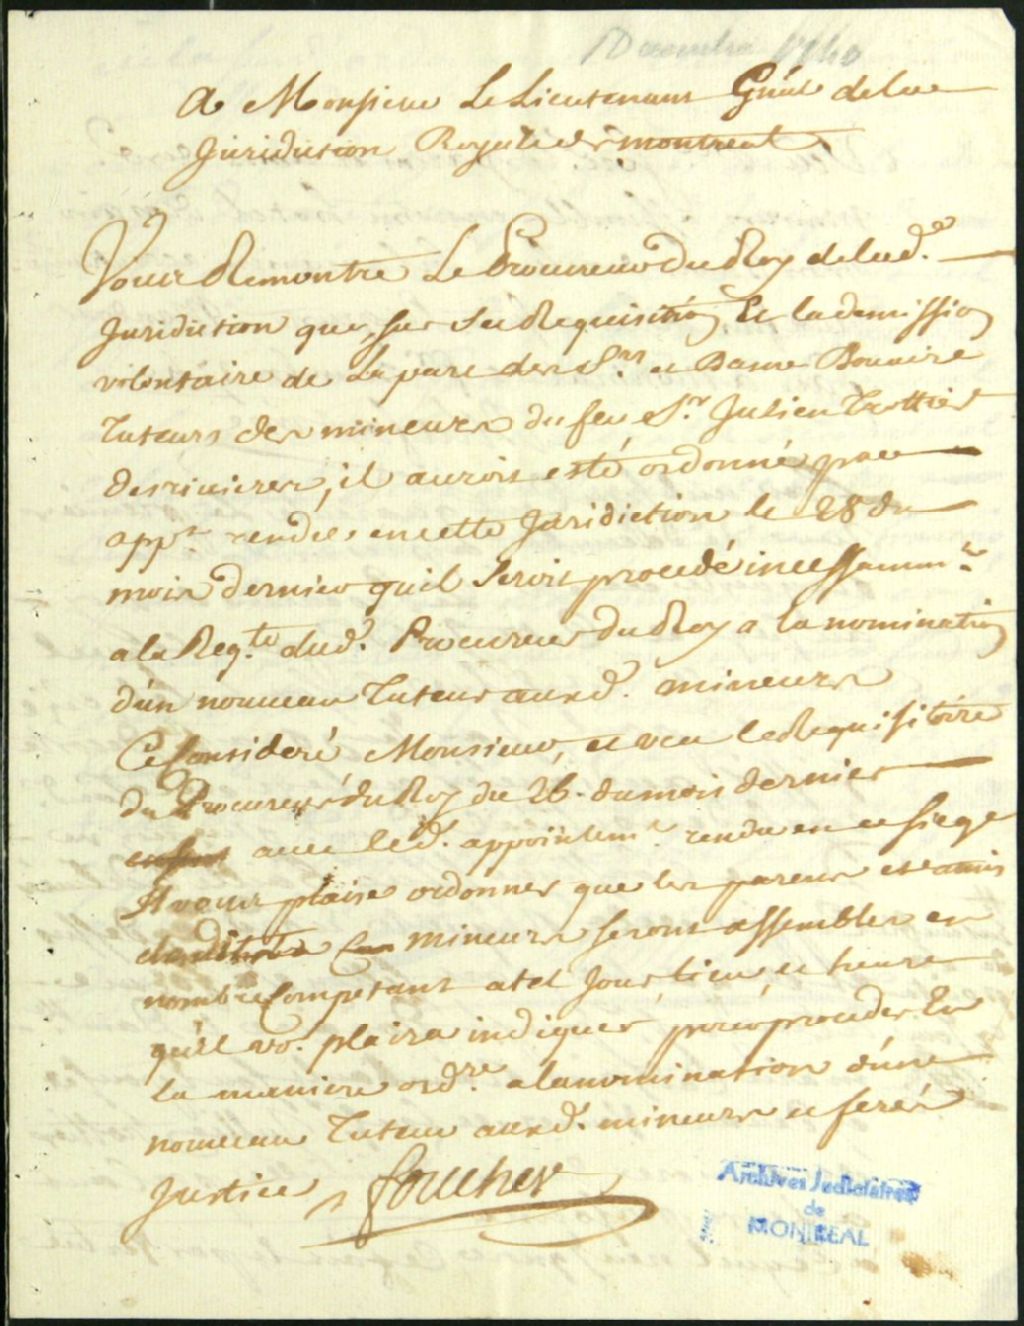 A Monsieur Le Lieutenant Gñal de la
Juridiction Royale de montreal
Vous Remontre Le Procureur Du Roy de lad.e
Juridiction que, sur Sa Requisition Et la demission
volontaire de La part des Srs. et Dame
Tuteurs des mineurs du feu Sr. Julien Trottier
desrivieres, il auroit esté ordonné par
appt. rendu en cette Juridiction le 28 du
mois dernier quil Seroit procedé incessamm.t
a la Reqte. dud. Procureur Du Roy a la nomination
d'un nouveau Tuteur auxd. mineurs
Ce Consideré Monsieur, et veu le Requisitoire
du Procureur du Roy du 26. du mois dernier
avec led. appointemt. rendu en ce siege
Il vous plaise ordonner que les parens et amis
mineurs seront assemblés en
nombre Competant a tel Jour, lieu, et heure
qu'il vo. plaira indiquer pour proceder en
la maniere ordre. a la nomination d'un
nouveau Tuteur auxd. mineurs et ferés
Justice
foucher
Archives Judiciaires
de
MONTREAL